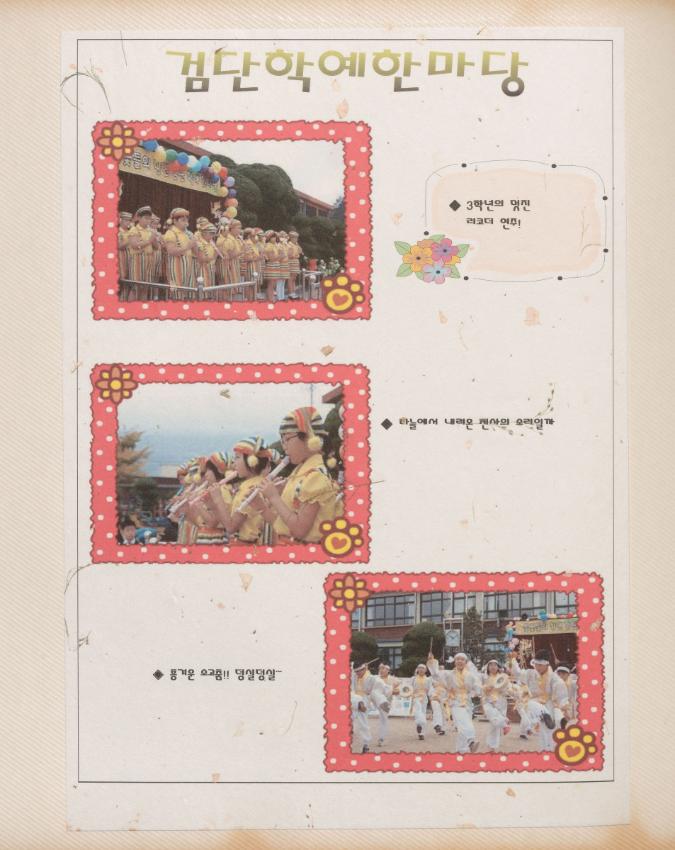 검단학예한마당
◆ 3학년의 멋진
리코더 연주!
◆ 하늘에서 내려온 천사의 소리일까
◆ 흥겨운 소고춤!! 덩실덩실~